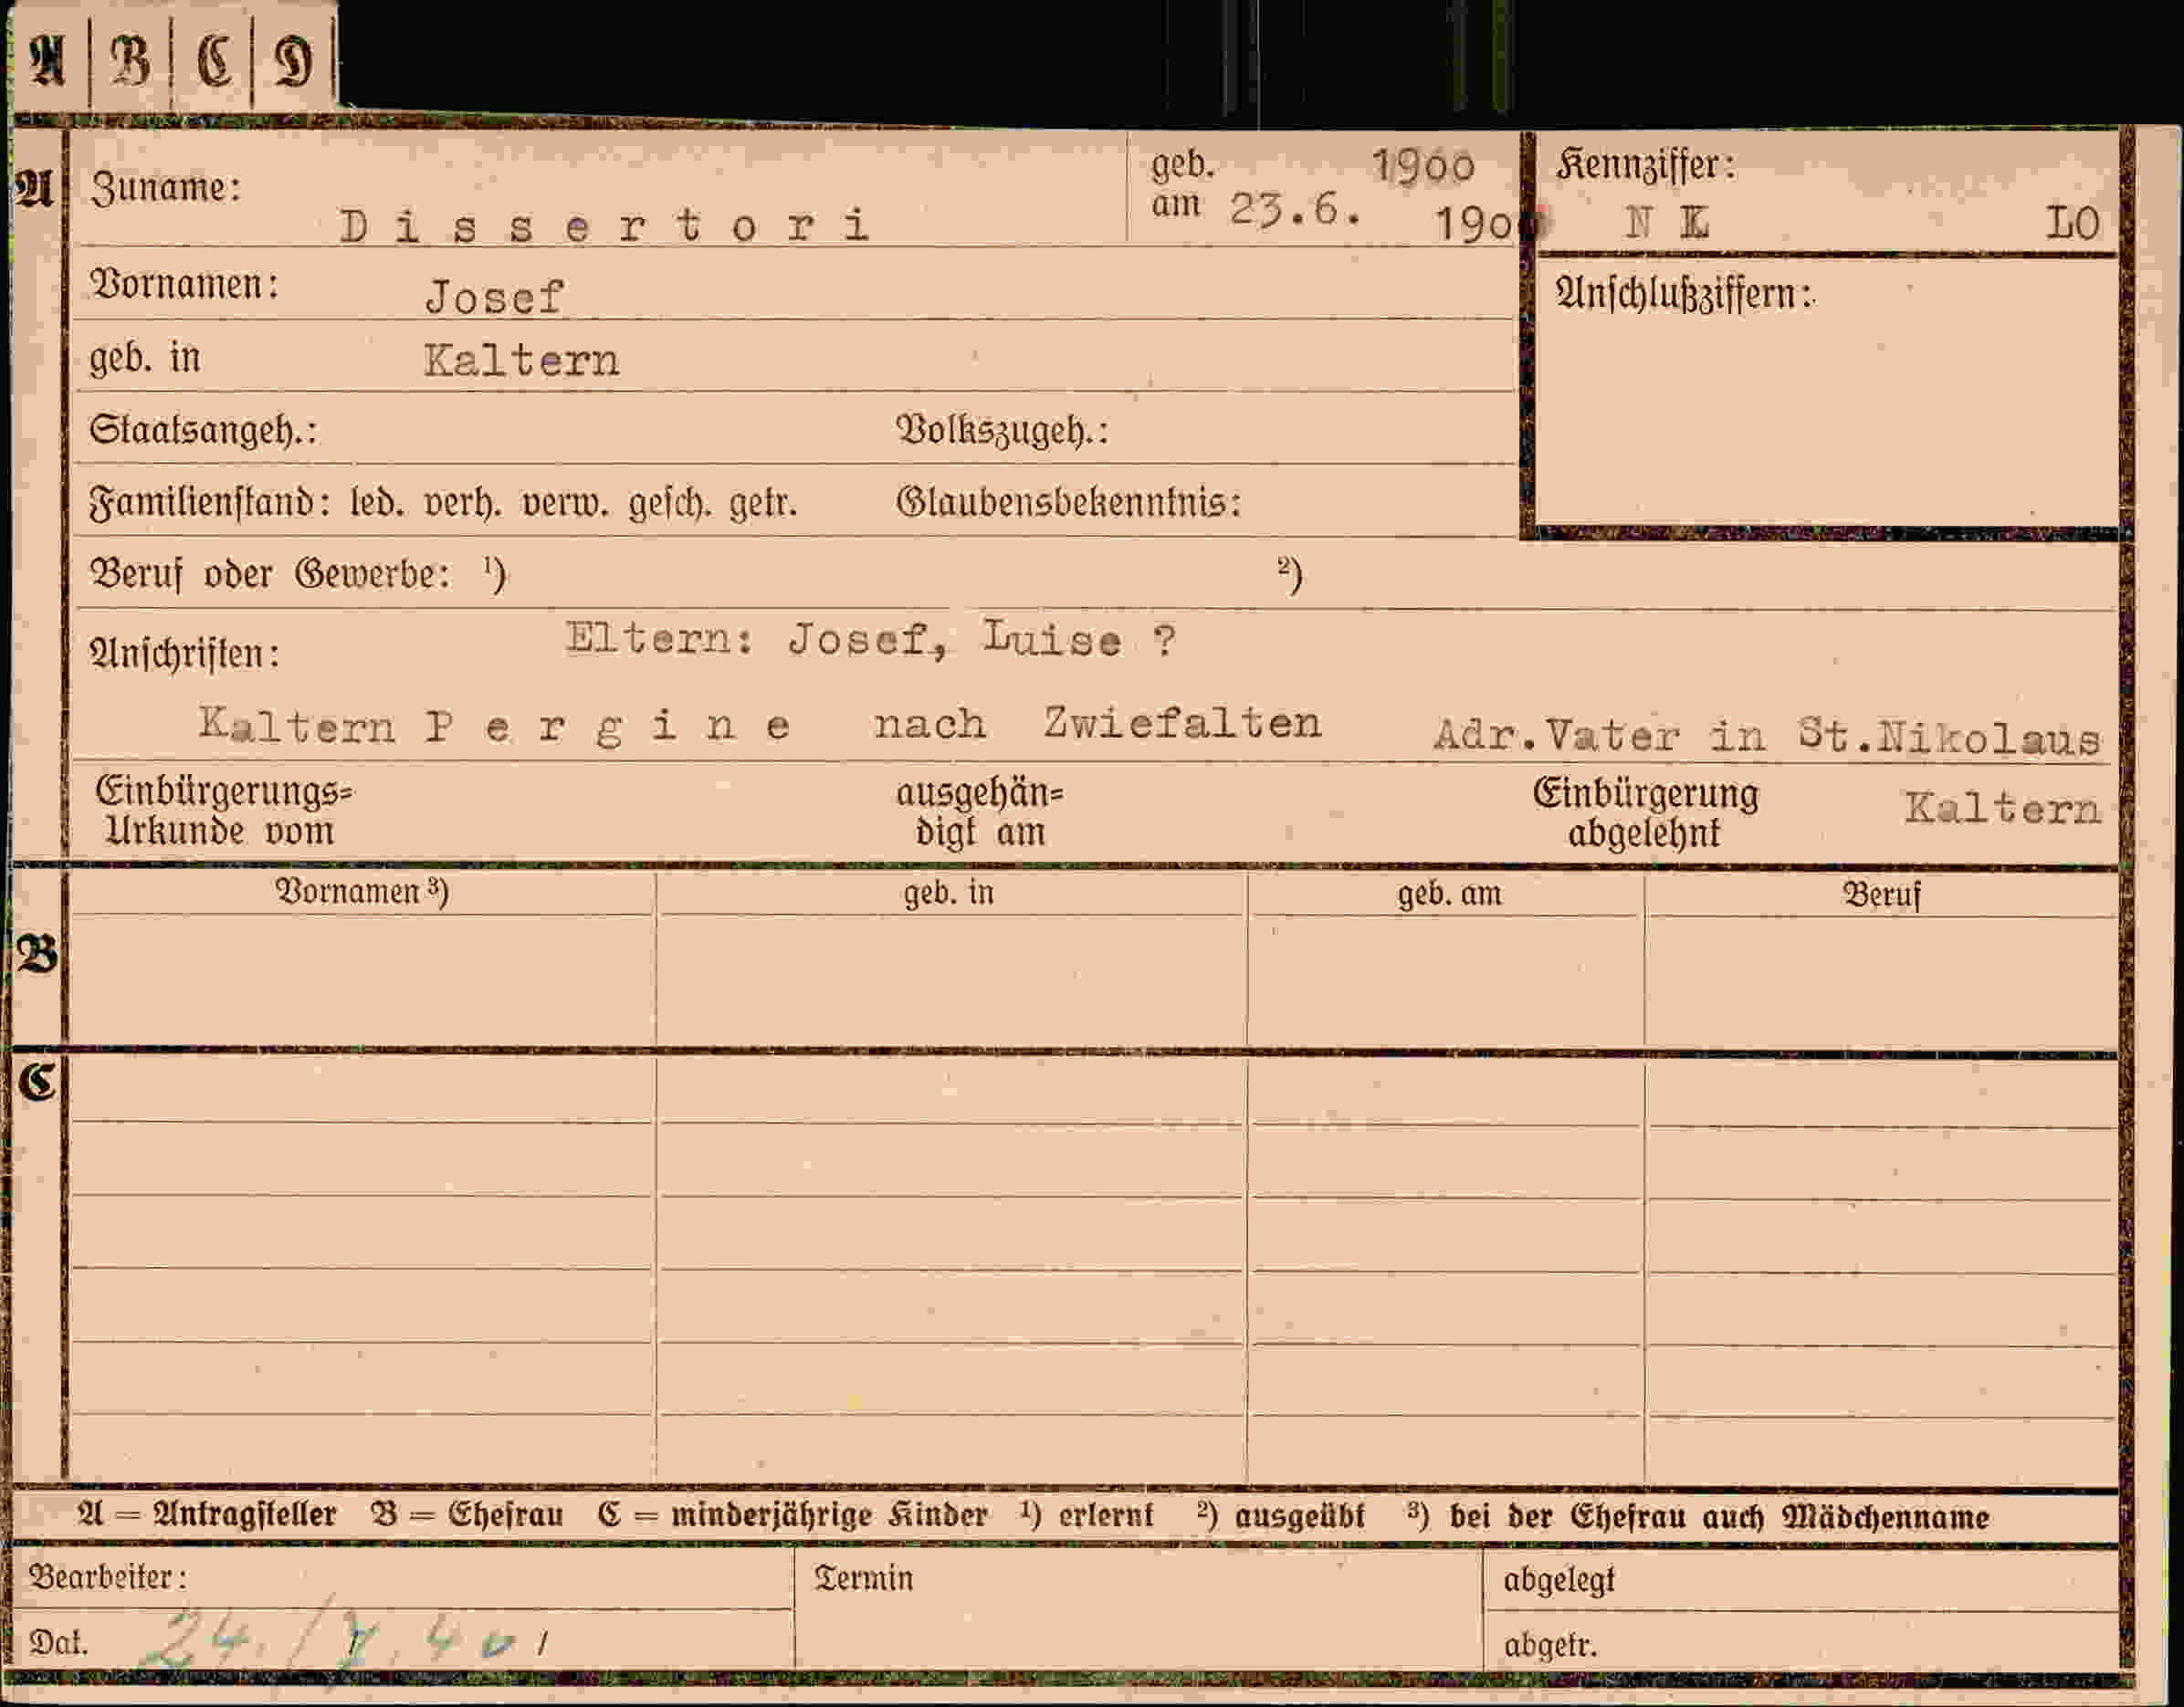 A | B | C | D
A
Zuname: Dissertori
geb. am 23.6. 1900 190
Kennziffer: N K LO
Vornamen: Josef
Anschlußziffern:
geb. in Kaltern
Staatsangeh.: Volkszugeh.:
Familienstand: led. verh. verw. gesch. getr. Glaubensbekenntnis:
Beruf oder Gewerbe: ¹) ²)
Anschriften: Eltern: Josef, Luise ?
Kaltern Pergine nach Zwiefalten Adr.Vater in St.Nikolaus
Kaltern
Einbürgerungs=
Urkunde vom
ausgehän=
digt am
Einbürgerung
abgelehnt
B
Vornamen ³) geb. in geb. am Beruf
C
A = Antragsteller B = Ehefrau C = minderjährige Kinder ¹) erlernt ²) ausgeübt ³) bei der Ehefrau auch Mädchenname
Bearbeiter: Termin abgelegt
Dat. 24./7.40/ abgetr.